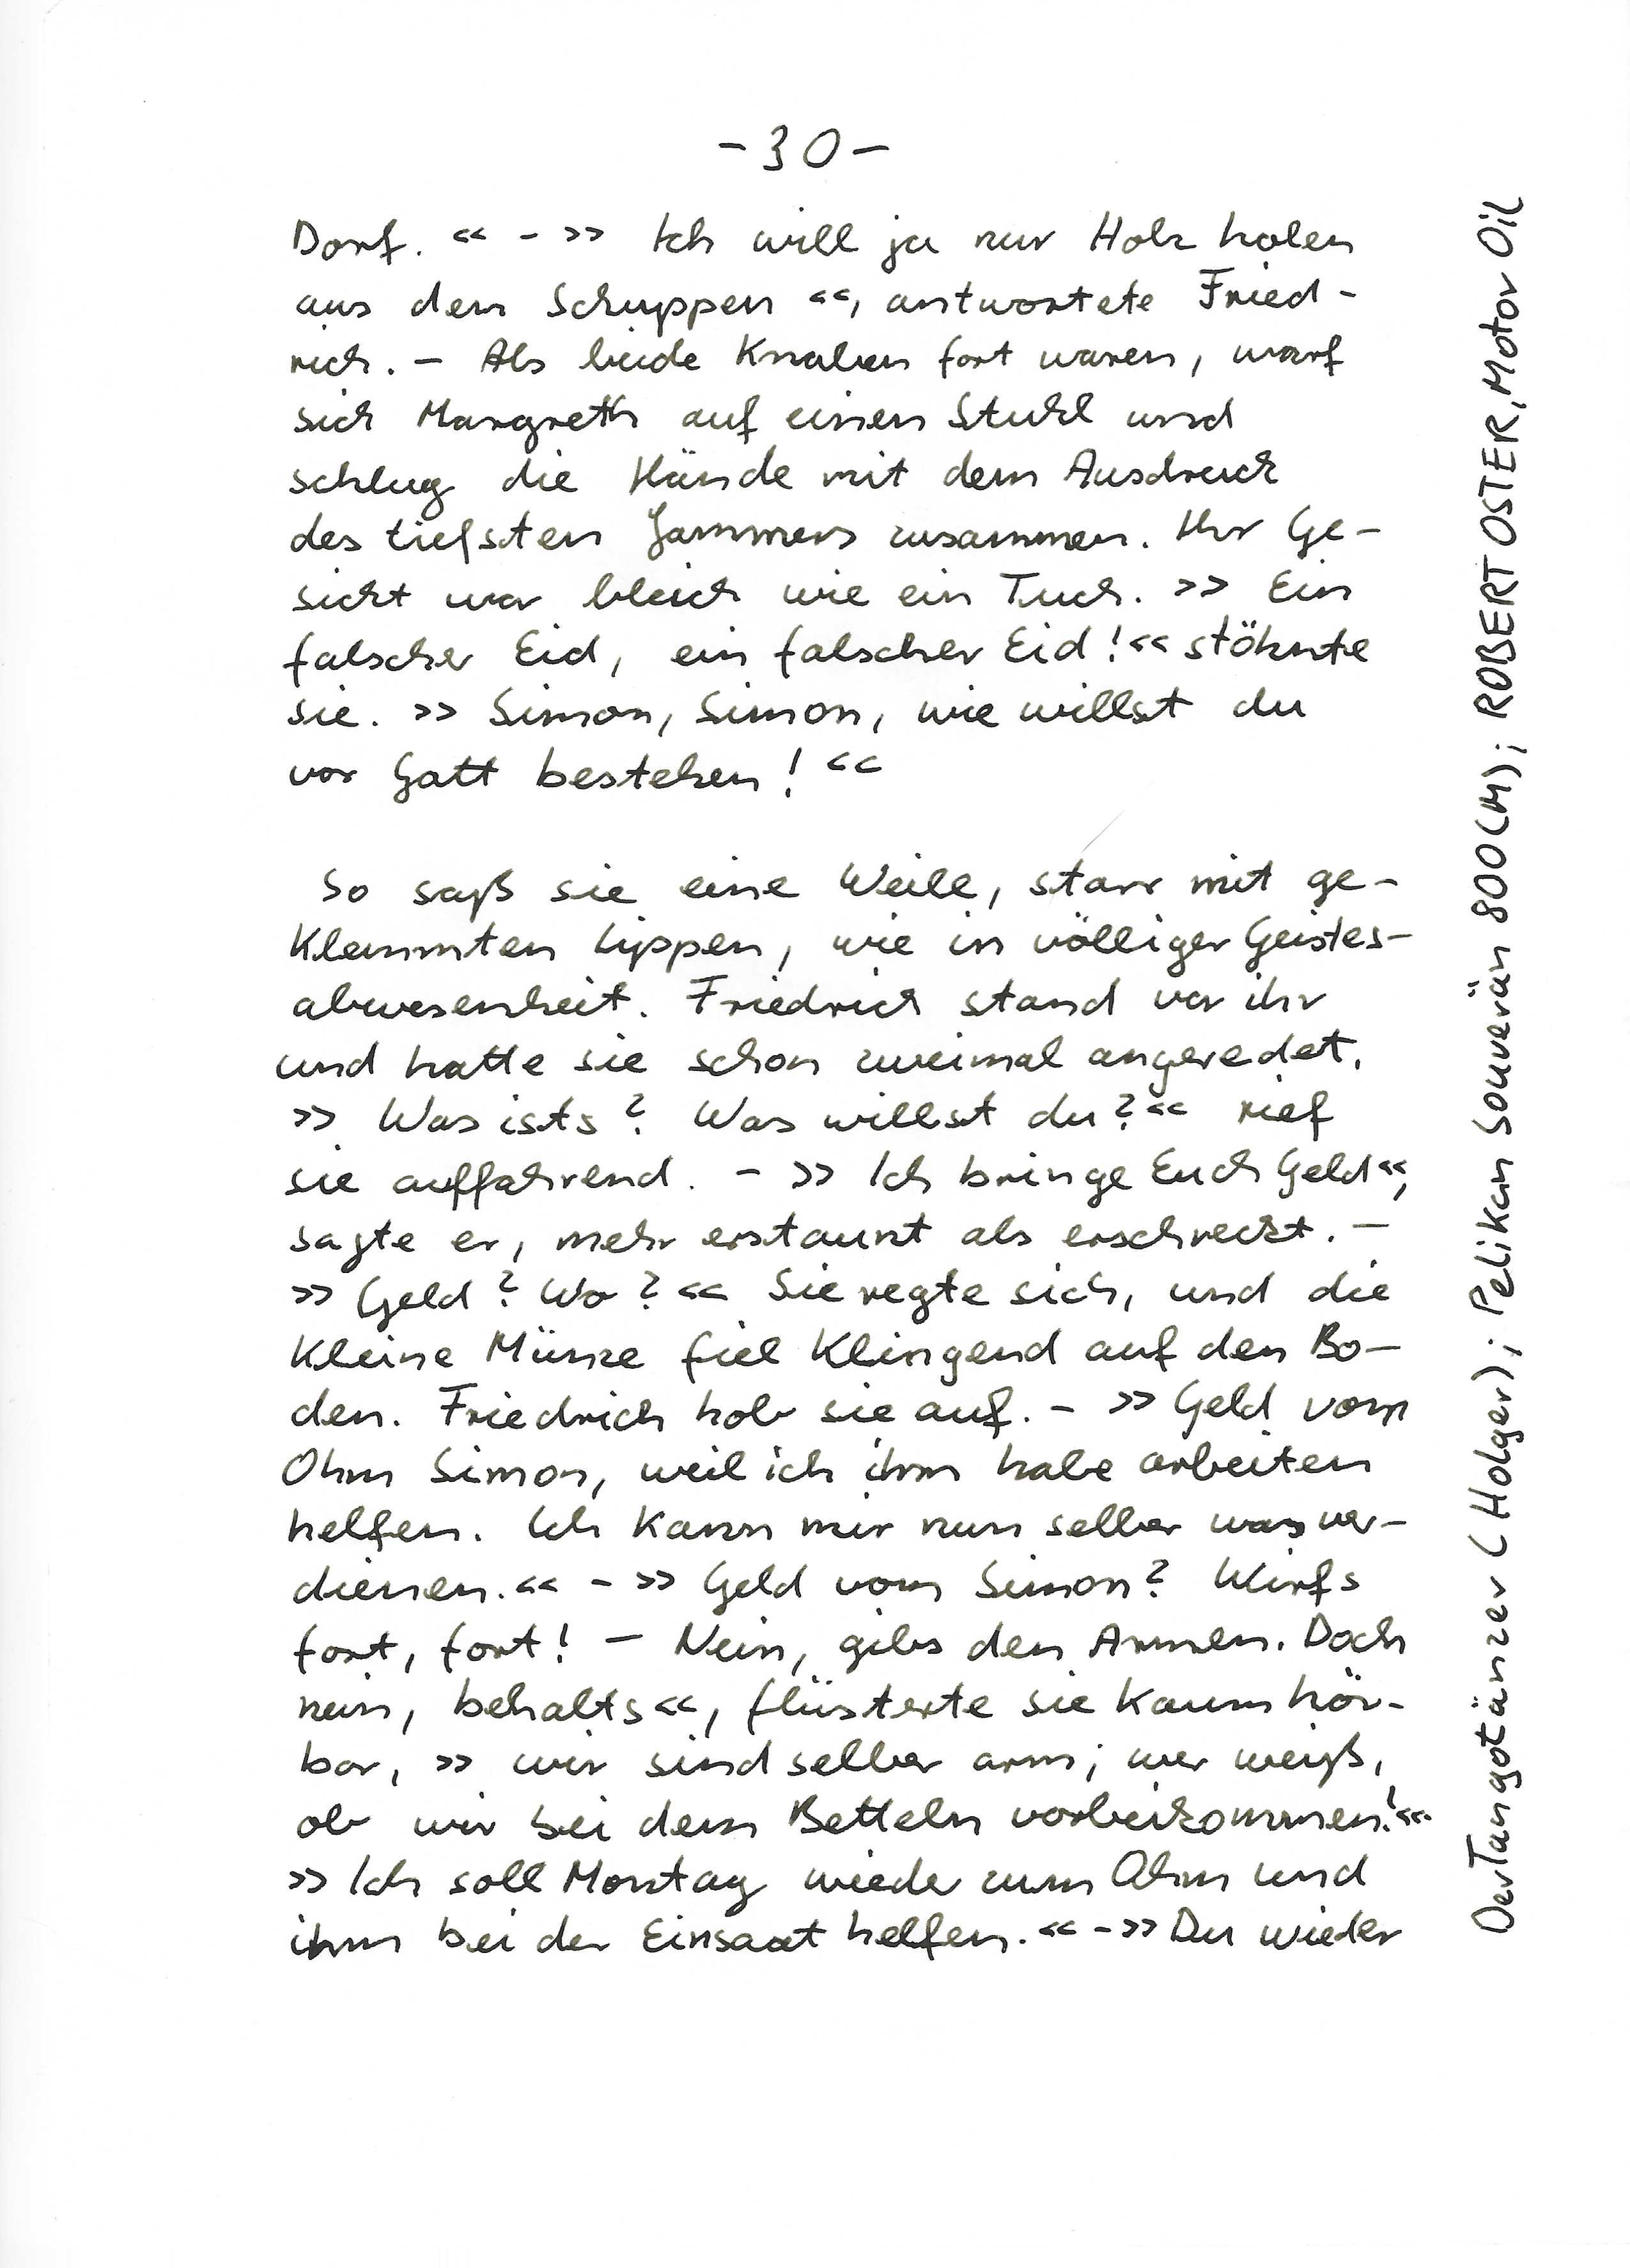 - 30 -
Dorf. « - » Ich will ja nur Holz holen
aus dem Schuppen «, antwortete Fried-
rich. - Als beide Knaben fort waren, warf
sich Margreth auf einen Stuhl und
schlug die Hände mit dem Ausdruck
des tiefsten Jammers zusammen. Ihr Ge-
sicht war bleich wie ein Tuch. » Ein
falscher Eid, ein falscher Eid! « stöhnte
sie. » Simon, Simon, wie willst du
vor Gott bestehen! «
So saß sie eine Weile, starr mit ge-
klemmten Lippen, wie in völliger Geistes-
abwesenheit. Friedrich stand vor ihr
und hatte sie schon zweimal angeredet.
» Was ists? Was willst du? « rief
sie auffahrend. - » Ich bringe Euch Geld «,
sagte er, mehr erstaunt als erschreckt. -
» Geld? Wo? « Sie regte sich, und die
kleine Münze fiel klingend auf den Bo-
den. Friedrich hob sie auf. - » Geld vom
Ohm Simon, weil ich ihm habe arbeiten
helfen. Ich kann mir nun selber was ver-
dienen. « - » Geld vom Simon? Wirfs
fort, fort! - Nein, gibs den Armen. Doch
nein, behalts «, flüsterte sie kaum hör-
bar, » wir sind selber arm; wer weiß,
ob wir bei dem Betteln vorbeikommen! «
» Ich soll Montag wieder zum Ohm und
ihm bei der Einsaat helfen. « - » Du wieder
DerTangotänzer (Holger); Pelikan Souverän 800 (M); ROBERT OSTER, Motor Oil